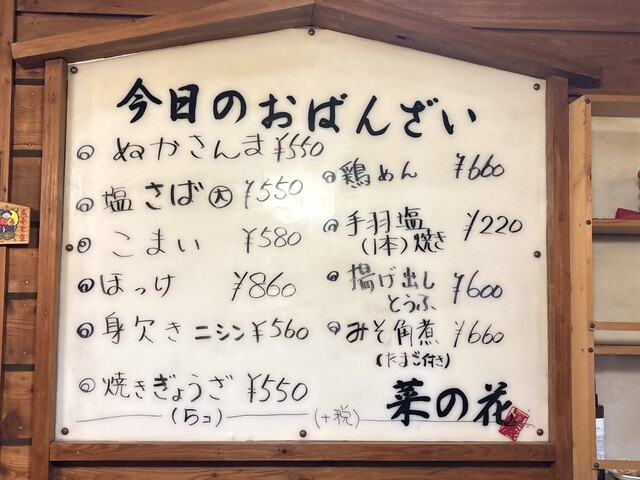 今日のおばんざい
◎ ぬかさんま ¥550
◎ 塩さば ㊛ ¥550
◎ こまい ¥580
◎ ほっけ ¥860
◎ 身欠きニシン ¥560
◎ 焼きぎょうざ ¥550
(5コ)
◎ 鶏めん ¥660
◎ 手羽塩 ¥220
(1本)焼き
◎ 揚げ出し ¥600
とうふ
◎ みそ角煮 ¥660
(たまご付き)
(+税)
菜の花